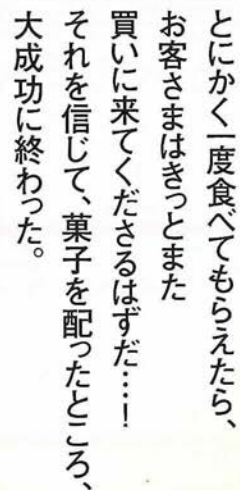 とにかく一度食べてもらえたら、
お客さまはきっとまた
買いに来てくださるはずだ…！
それを信じて、菓子を配ったところ、
大成功に終わった。